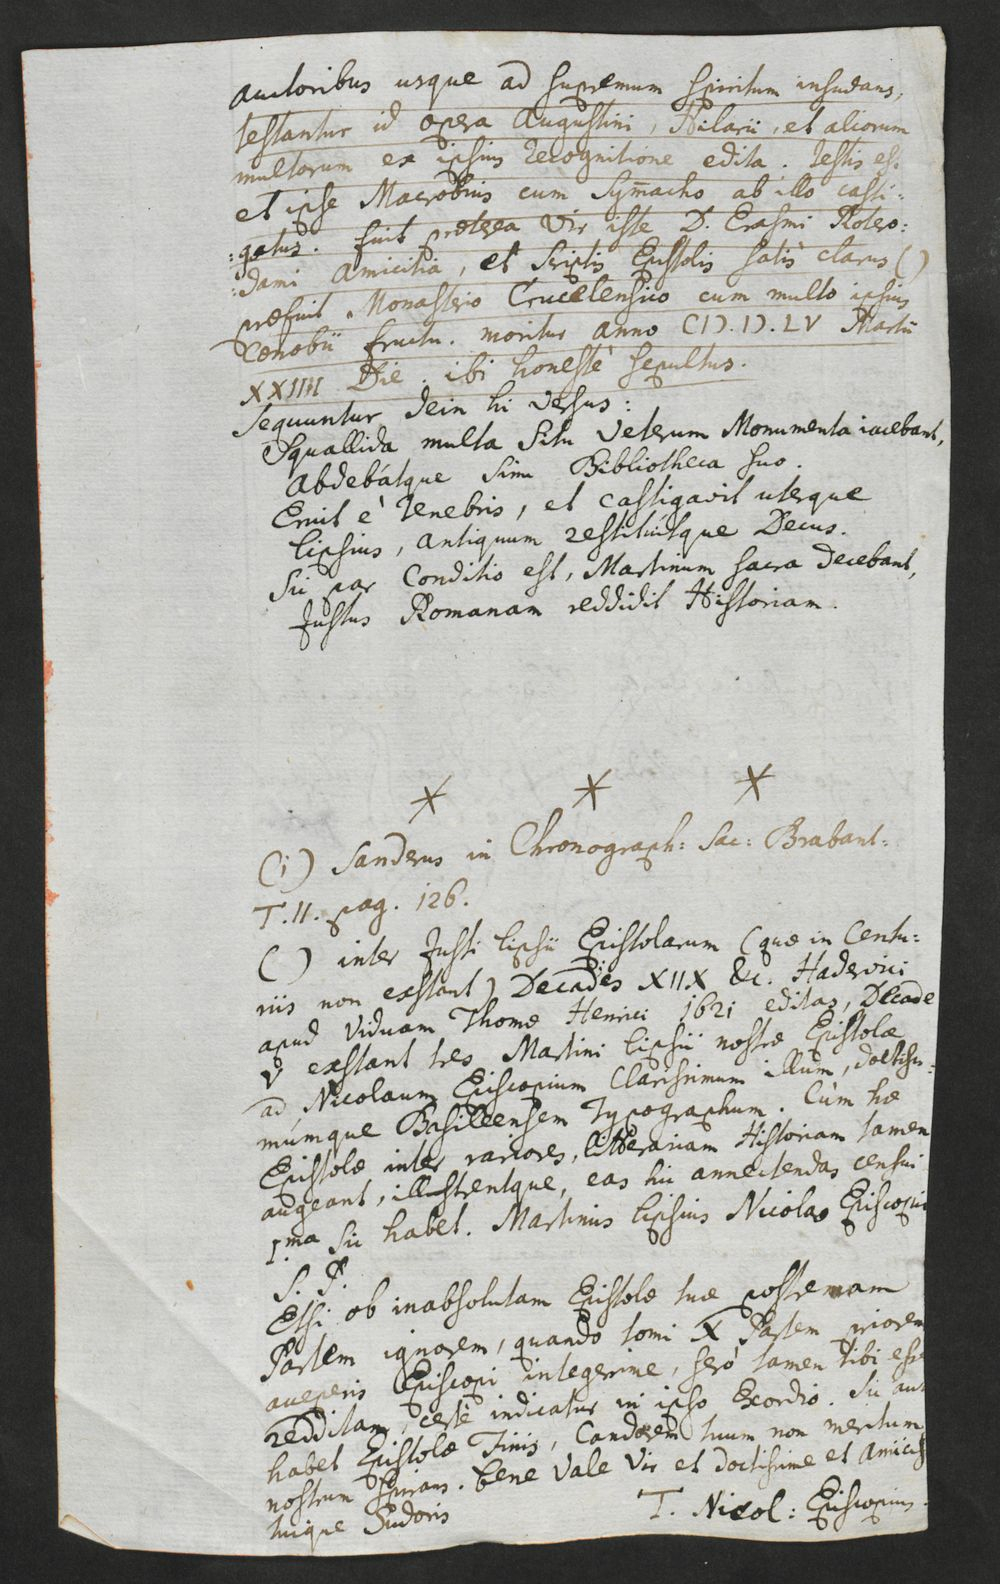 auctoribus usque ad supremum spiritum insudans,
testantur id opera Augustini, Hilarii, et aliorum
multorum ex ipsius recognitione edita. testis est
et ipse Macrobius cum Sym̄acho ab illo casti:
:gatus. fuit præterea Vir iste D. Erasmi Rotero:
:dami amicitia, et scriptis Epistolis satis clarus ( )
præfuit Monasterio Crucelensiio cum multo ipsius
Cœnobii fructu. moritur anno CIƆ.IƆ.LV Martii
XXIIII Die. ibi honestè sepultus.
sequuntur dein hi versus:
Squallida multa situ Veterum Monumenta iacebant,
Abdebátque sinu Bibliotheca suo.
Eruit è tenebris, et castigavit uterque
Lipsius, antiquum restituitque Decus.
Sic par Conditio est, Martinum sacra decebant,
Justus Romanam reddidit Historiam.
* * *
(i) Sanderus in Chronograph: Sac: Brabant:
T.II. pag. 126.
( ) inter Justi Lipsii Epistolarum (quæ in Centu:
riis non exstant) Decades XIIX &c. Hadervici
apud Viduam Thomæ Henrici 1621 editas, Decade
V exstant tres Martini Lipsii nostræ Epistolæ
ad Nicolaum Episcopium Clarissimum illum, doctiss:
mumque Basilleensem Typographum. Cùm hæ
Epistolæ inter rariores, litterariam Historiam tamen
augeant, illustrentque, eas hic annectendas censui
I.ma sic habet. Martinus Lipsius Nicolao Episcopio
S. P.
Etsi ob inabsolutam Epistolæ tuæ postremam
Partem ignorem, quando tomi X Partem priorem
acceperis Episcopi integerrime, serò tamen tibi esse
redditam, certè indicatur in ipso Exordio. Sic aut
habet Epistolæ Finis, Candorem tuum non meritum
nostrum spirans. bene Vale Vir et doctissime et amiciss
tuique Sudoris T. Nicol: Episcopius.